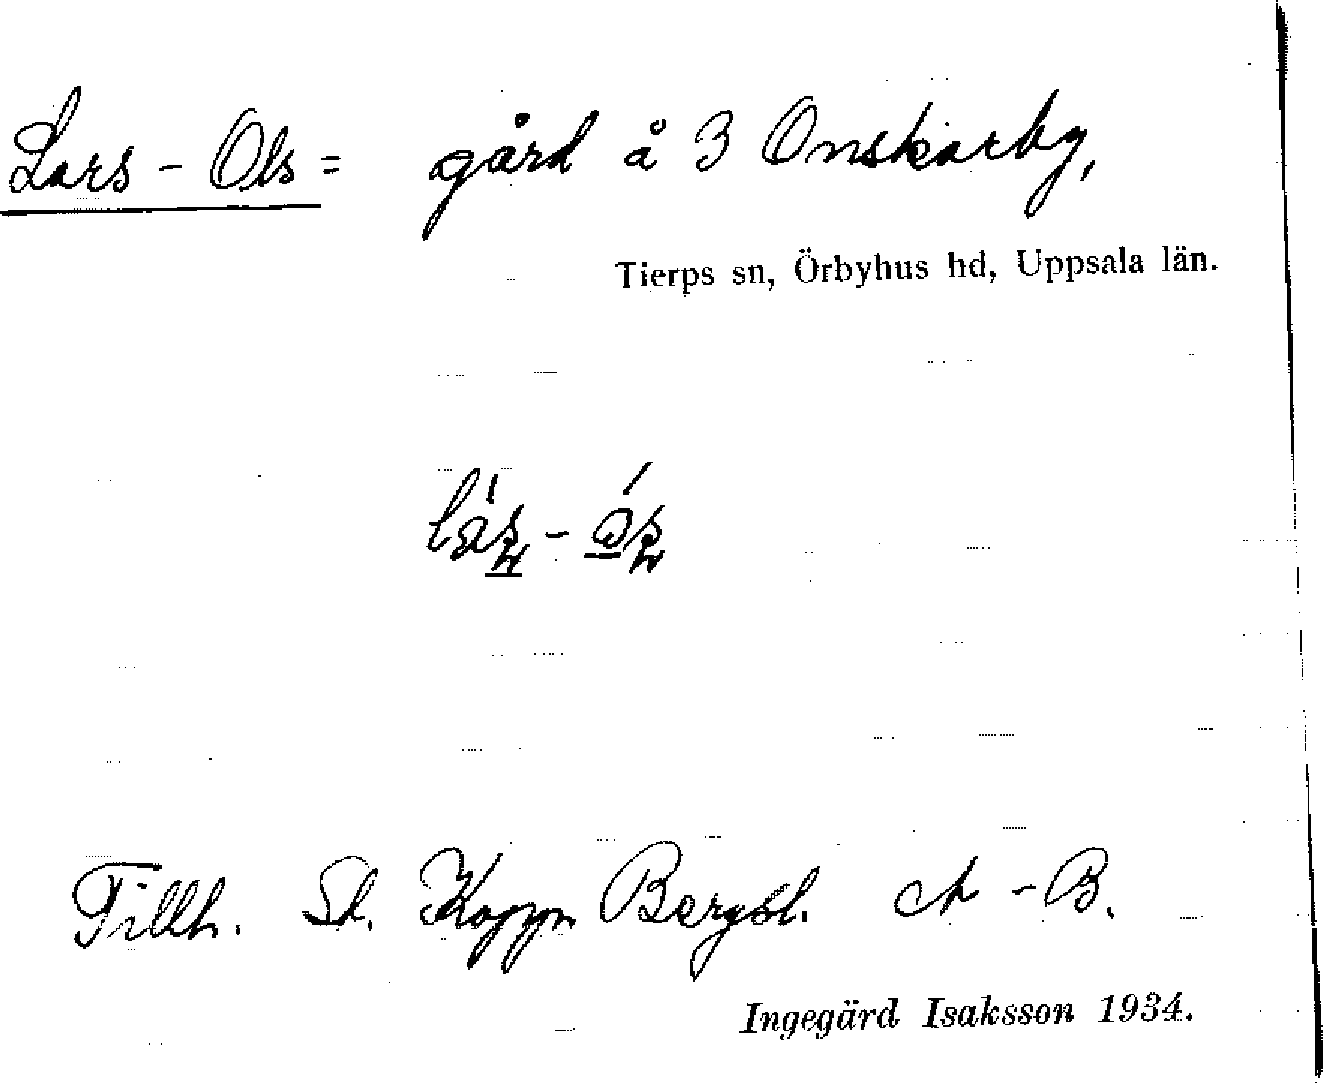 Lars-Ols= gård å 3 Onskarby,
Tierps sn, Örbyhus hd, Uppsala län.
Tillh. St. Koppr Bergsl. A-B.
Ingegärd Isaksson 1934.